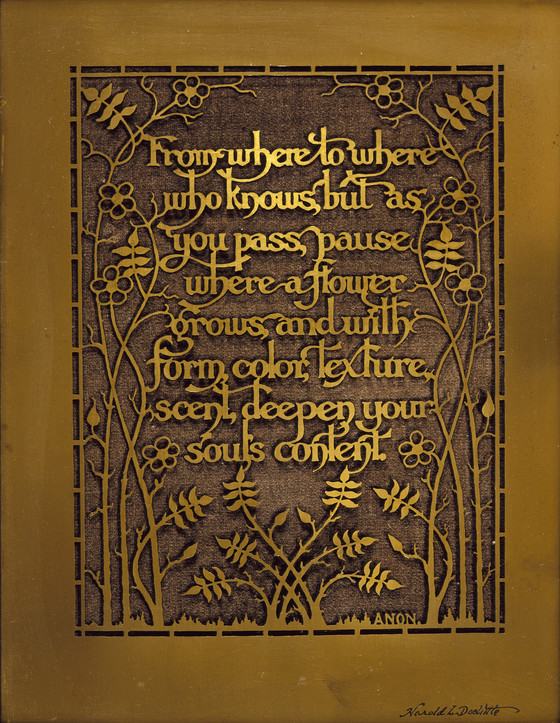 From where to where
who knows, but as
you pass, pause
where a flower
grows, and with
form, color, texture,
scent, deepen your
soul's content.
ANON.
Harold L. Doolittle